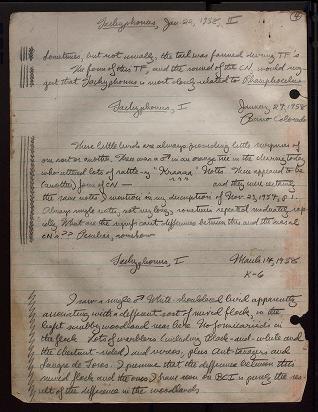 Tachyphonus, Jan. 22, 1958, II
4
Sometimes, but not usually, the tail was fanned during TF's
The form of this TF, and the sound of the CN, would sug-
gest that Tachyphonus is most closely related to Ramphocelus
Tachyphonus, I
January 29, 1958
Barro Colorado
These little birds are always providing little surprises of
one sort or another. There was a ♂ in an orange tree in the clearing today
who uttered lots of rattle-y "Kraaaa" Notes. These appeared to be
(another) form of CN —
and they were certainly
the same notes I mention in my description of Nov. 23, 1957, p. 1.
Always single notes, not very long, sometimes repeated moderately rap-
idly. What are the significant differences between this and the nasal
CN's?? Peculiar, somehow
Tachyphonus, I
March 14, 1958
K-6
I saw a single ♂ White-shouldered bird apparently
associating with a different sort of mixed flock, in the
light scrubby woodland near here. No formicariids in
the flock. Lots of warblers (including Black-and-white and
the Chestnut-sided) and vireos, plus Ant-tanagers and
Sangre de Toros. I presume that the difference between this
mixed flock and the ones I have seen on BCI is purely the re-
sult of the difference in the woodlands